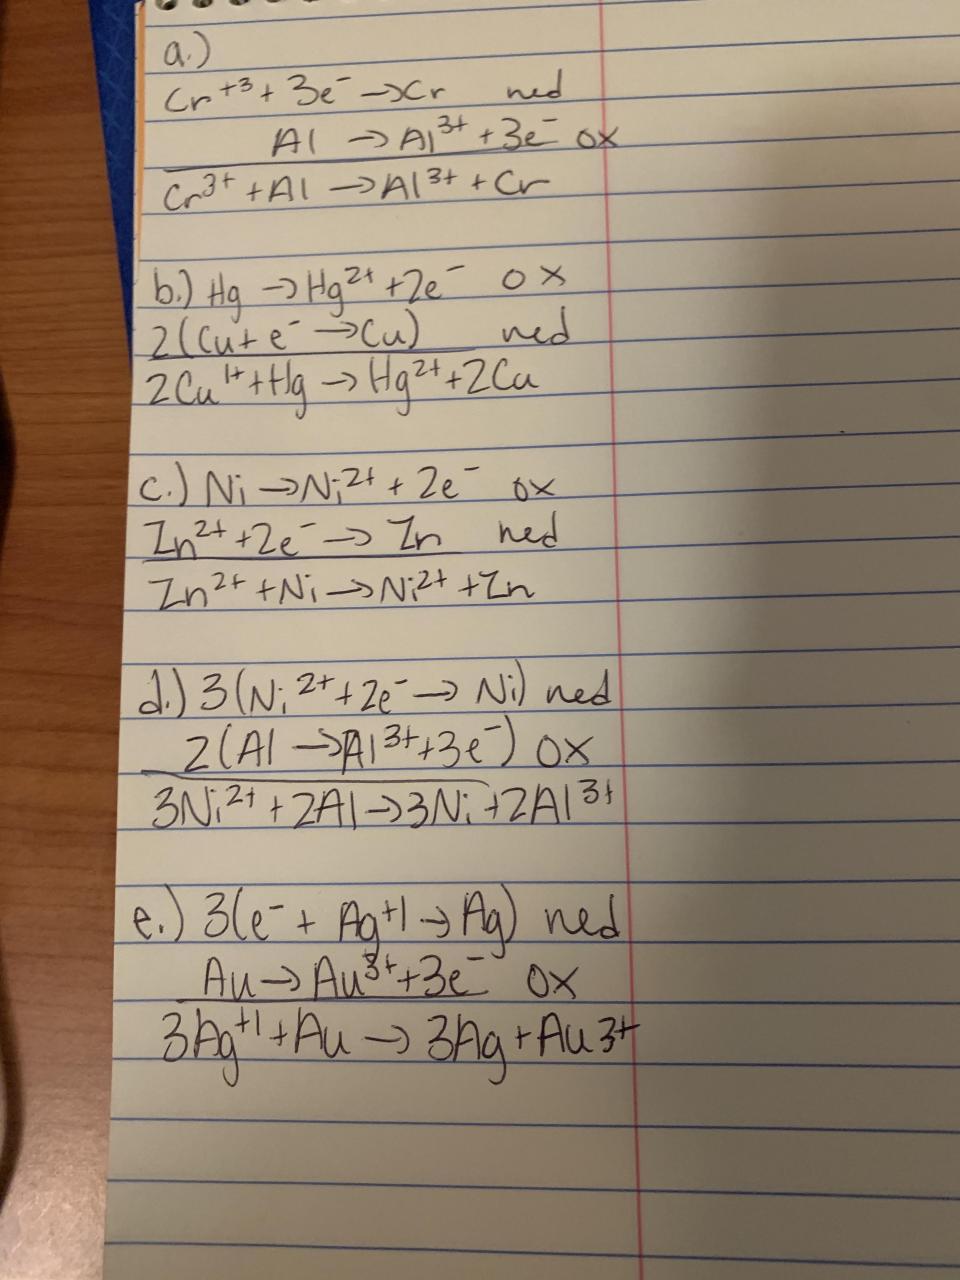 a.)
Cr⁺³ + 3e⁻ → Cr red
Al → Al³⁺ + 3e⁻ ox
Cr³⁺ + Al → Al³⁺ + Cr
b.) Hg → Hg²⁺ + 2e⁻ ox
2(Cu + e⁻ → Cu) red
2Cu¹⁺ + Hg → Hg²⁺ + 2Cu
c.) Ni → Ni²⁺ + 2e⁻ ox
Zn²⁺ + 2e⁻ → Zn red
Zn²⁺ + Ni → Ni²⁺ + Zn
d.) 3(Ni²⁺ + 2e⁻ → Ni) red
2(Al → Al³⁺ + 3e⁻) ox
3Ni²⁺ + 2Al → 3Ni + 2Al³⁺
e.) 3(e⁻ + Ag⁺¹ → Ag) red
Au → Au³⁺ + 3e⁻ ox
3Ag⁺¹ + Au → 3Ag + Au³⁺